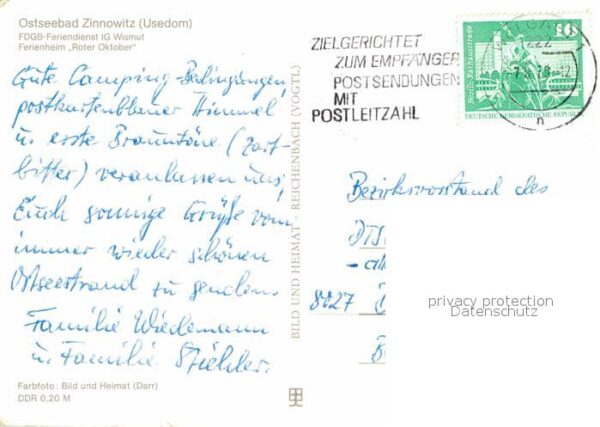 Ostseebad Zinnowitz (Usedom)
FDGB-Feriendienst IG Wismut
Ferienheim „Roter Oktober"
Gute Camping-Bedingungen,
postkartenblauer Himmel
u. erste Brauntöne (zart-
bitter) veranlassen uns,
Euch sonnige Grüße vom
immer wieder schönen
Ostseestrand zu senden.
Familie Wiedemann
u. Familie Stiehler.
Farbfoto: Bild und Heimat (Darr)
DDR 0,20 M
BILD UND HEIMAT REICHENBACH (VOGTL)
ZIELGERICHTET
ZUM EMPFÄNGER
POSTSENDUNGEN
MIT
POSTLEITZAHL
Berlin, Rathausstraße
10
DEUTSCHE DEMOKRATISCHE REPUBLIK
222
Bezirksvorstand des
8027
privacy protection
Datenschutz